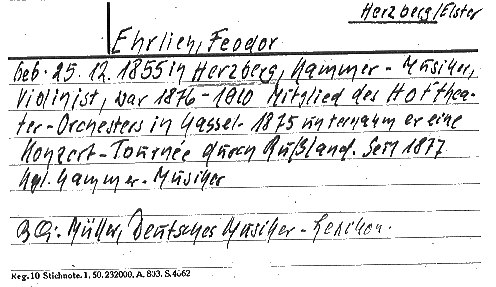 Herzberg/Elster
Ehrlich, Feodor
geb. 25. 12. 1855 in Herzberg, Kammer-Musiker,
Violinist, war 1876-1910 Mitglied des Hofthea-
ter-Orchesters in Kassel. 1875 unternahm er eine
Konzert-Tournée durch Rußland. Seit 1877
Kgl. Kammer-Musiker
Müller, Deutsches Musiker-Lexikon.
Reg. 10 Stichnote. 1, 50. 232000, A. 893. S. 4062